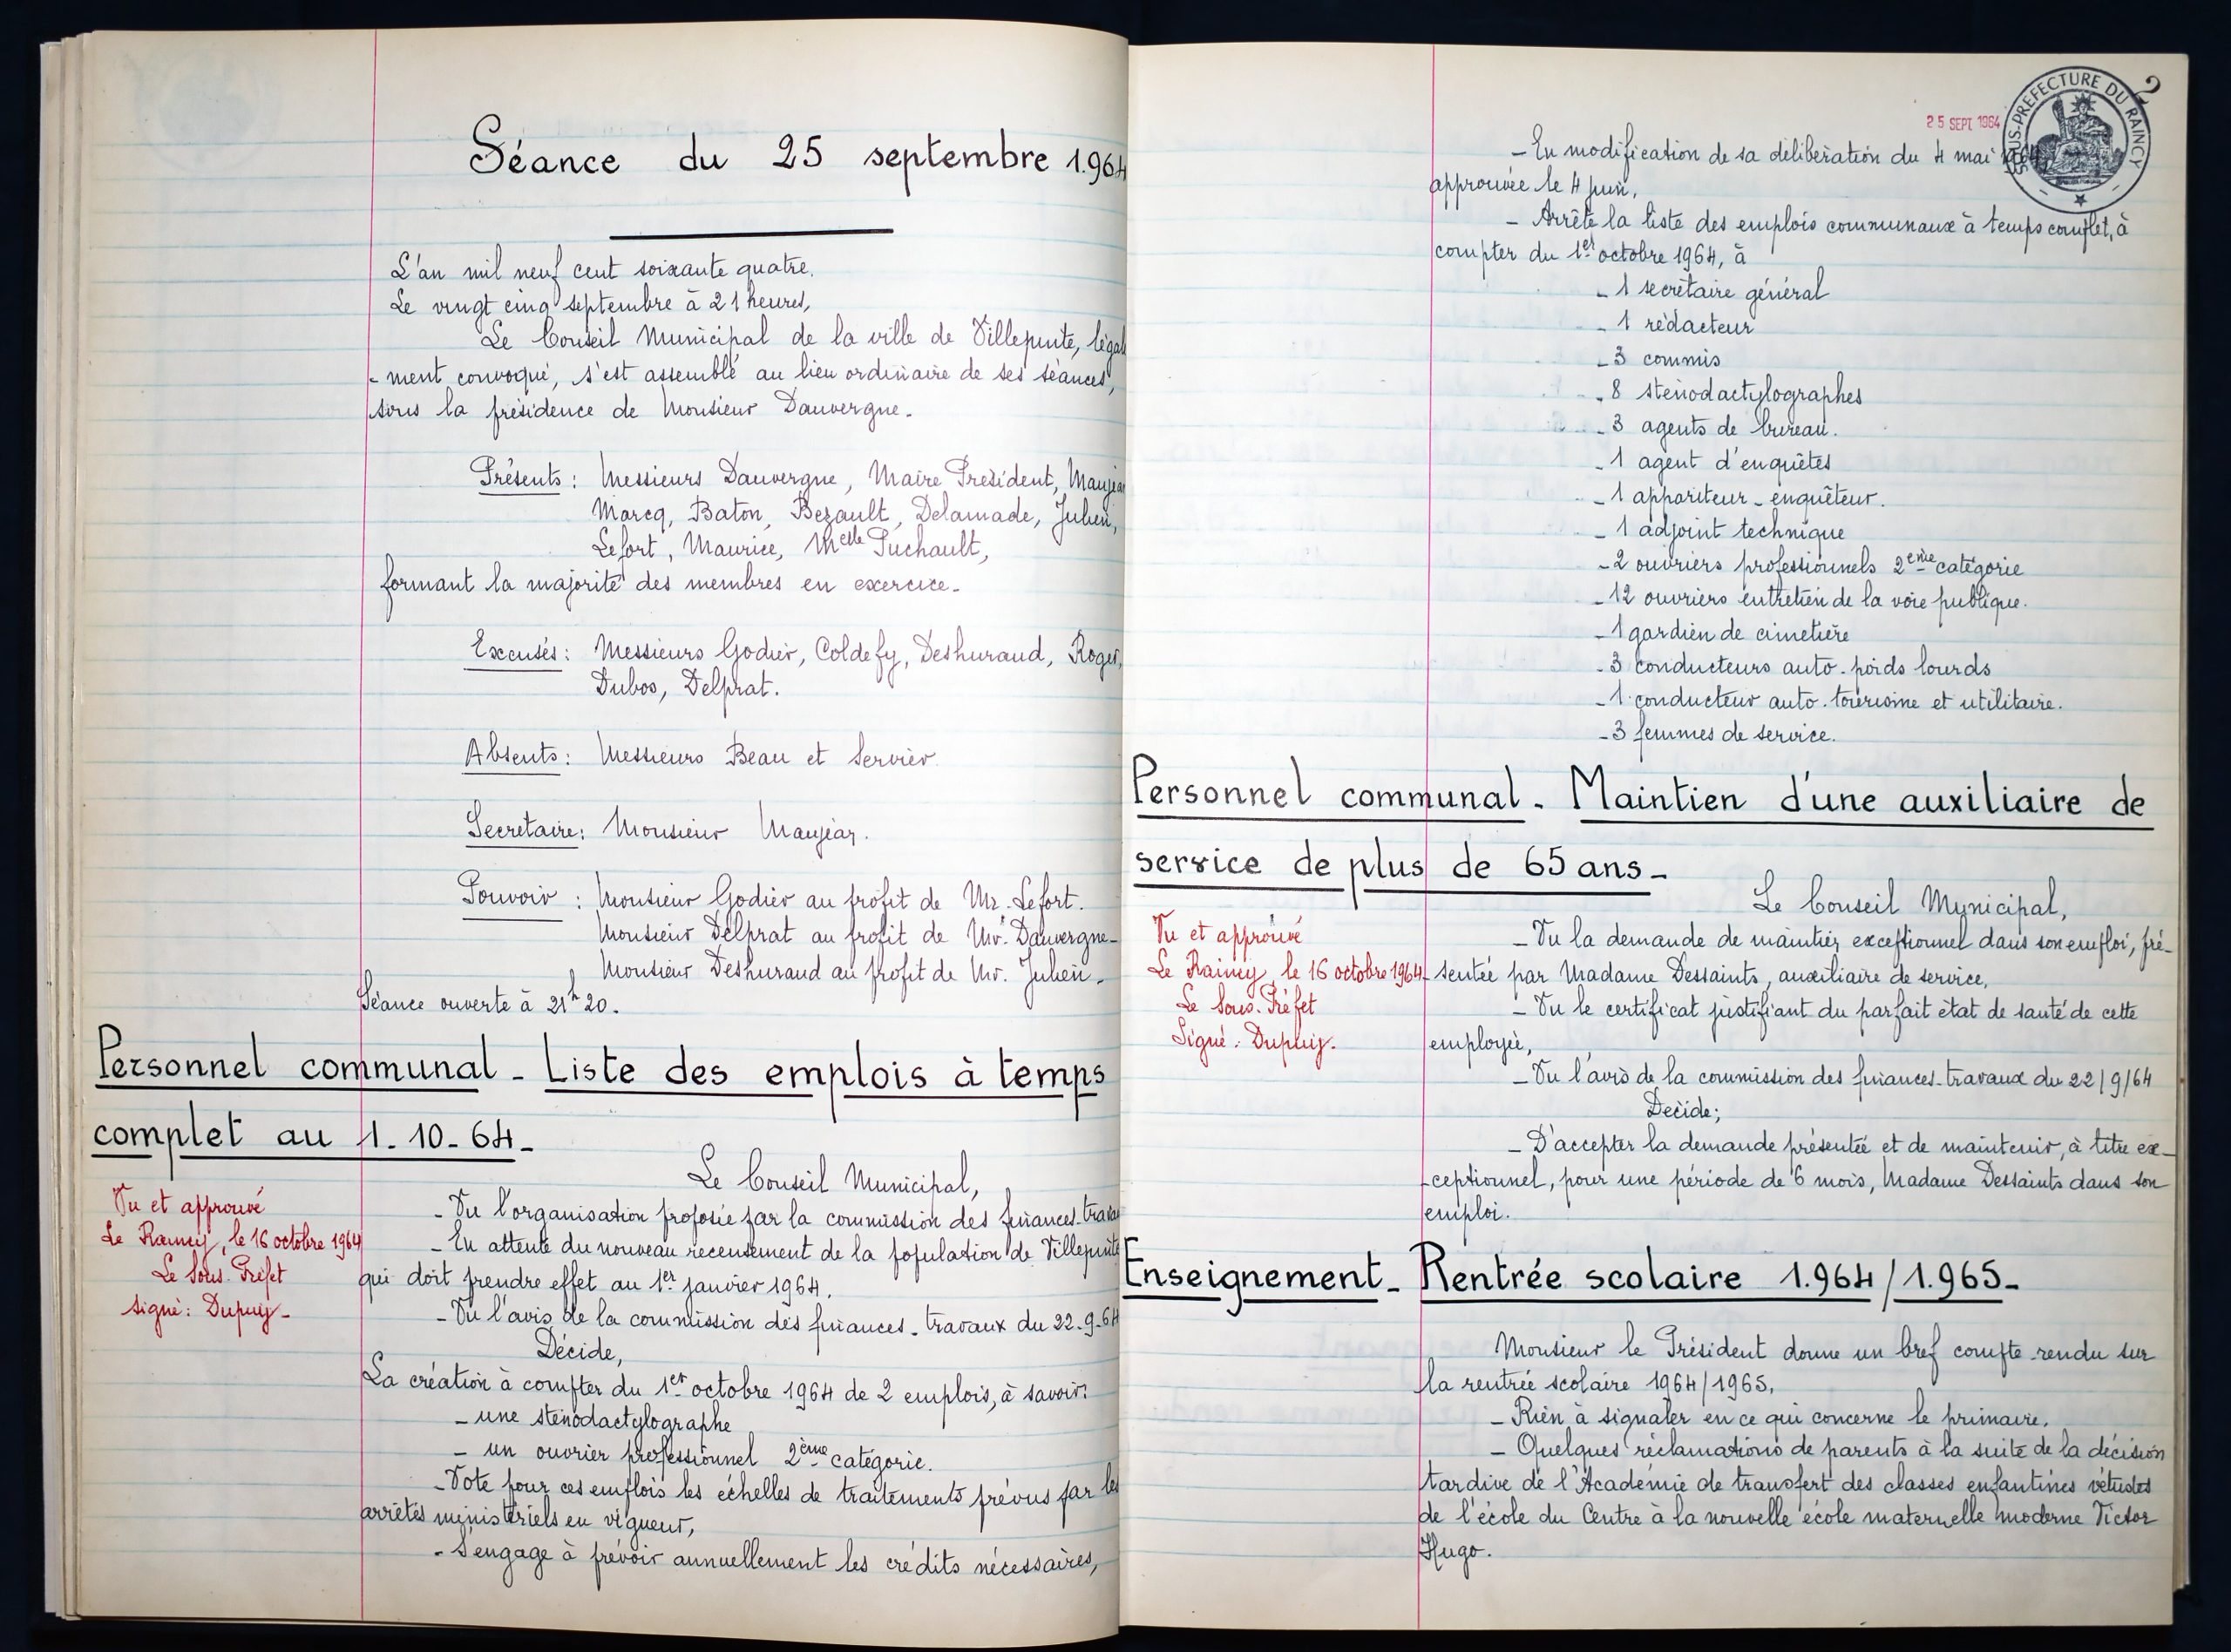 Séance du 25 septembre 1.964
L'an mil neuf cent soixante quatre.
Le vingt cinq septembre à 21 heures,
Le Conseil Municipal de la ville de Villepinte, légal
- ment convoqué, s'est assemblé au lieu ordinaire de ses séances,
sous la présidence de Monsieur Dauvergne.
Présents : Messieurs Dauvergne, Maire Président,
Marcq, Baton, Bezault, Delamade, Julien,
Lefort, Maurice, Melle Puchault,
formant la majorité des membres en exercice.
Excusés : Messieurs Godier, Coldefy, Deshuraud, Roger,
Dubos, Delprat.
Absents : Messieurs Beau et Servier.
Secrétaire : Monsieur Maujean.
Pouvoir : Monsieur Godier au profit de Mr. Lefort.
Monsieur Delprat au profit de Mr. Dauvergne-
Monsieur Deshuraud au profit de Mr. Julien.
Séance ouverte à 21h 20.
Personnel communal - Liste des emplois à temps
complet au 1-10-64-
Vu et approuvé
Le Raincy, le 16 octobre 1964
Le Sous-Préfet
signé : Dupuy-
Le Conseil Municipal,
- Vu l'organisation proposée par la commission des finances-trava
- En attente du nouveau recensement de la population de Villepinte
qui doit prendre effet au 1er janvier 1964.
- Vu l'avis de la commission des finances-travaux du 22-9-64
Décide,
La création à compter du 1er octobre 1964 de 2 emplois, à savoir:
- une sténodactylographe
- un ouvrier professionnel 2ème catégorie.
- Vote pour ces emplois les échelles de traitements prévus par les
arrêtés ministériels en vigueur,
- S'engage à prévoir annuellement les crédits nécessaires,
2
25 SEPT 1964
SOUS-PREFECTURE DU RAINCY
- En modification de sa délibération du 4 mai 1964,
approuvée le 4 juin,
- Arrête la liste des emplois communaux à temps complet, à
compter du 1er octobre 1964, à
- 1 secrétaire général
- 1 rédacteur
- 3 commis
- 8 sténodactylographes
- 3 agents de bureau.
- 1 agent d'enquêtes
- 1 appariteur-enquêteur.
- 1 adjoint technique
- 2 ouvriers professionnels 2ème catégorie
- 12 ouvriers entretien de la voie publique.
- 1 gardien de cimetière
- 3 conducteurs auto-poids lourds
- 1 conducteur auto-tourisme et utilitaire.
- 3 femmes de service.
Personnel communal - Maintien d'une auxiliaire de
service de plus de 65 ans-
Vu et approuvé
Le Raincy, le 16 octobre 1964
Le Sous-Préfet
Signé : Dupuy.
Le Conseil Municipal,
- Vu la demande de maintien exceptionnel dans son emploi, pré-
- sentée par Madame Dessaints, auxiliaire de service,
- Vu le certificat justifiant du parfait état de santé de cette
employée,
- Vu l'avis de la commission des finances-travaux du 22/9/64
Décide;
- D'accepter la demande présentée et de maintenir, à titre ex-
-ceptionnel, pour une période de 6 mois, Madame Dessaints dans son
emploi.
Enseignement- Rentrée scolaire 1.964/1.965-
Monsieur le Président donne un bref compte-rendu sur
la rentrée scolaire 1964/1965.
- Rien à signaler en ce qui concerne le primaire.
- Quelques réclamations de parents à la suite de la décision
tardive de l'Académie de transfert des classes enfantines vétustes
de l'école du Centre à la nouvelle école maternelle moderne Victor
Hugo.